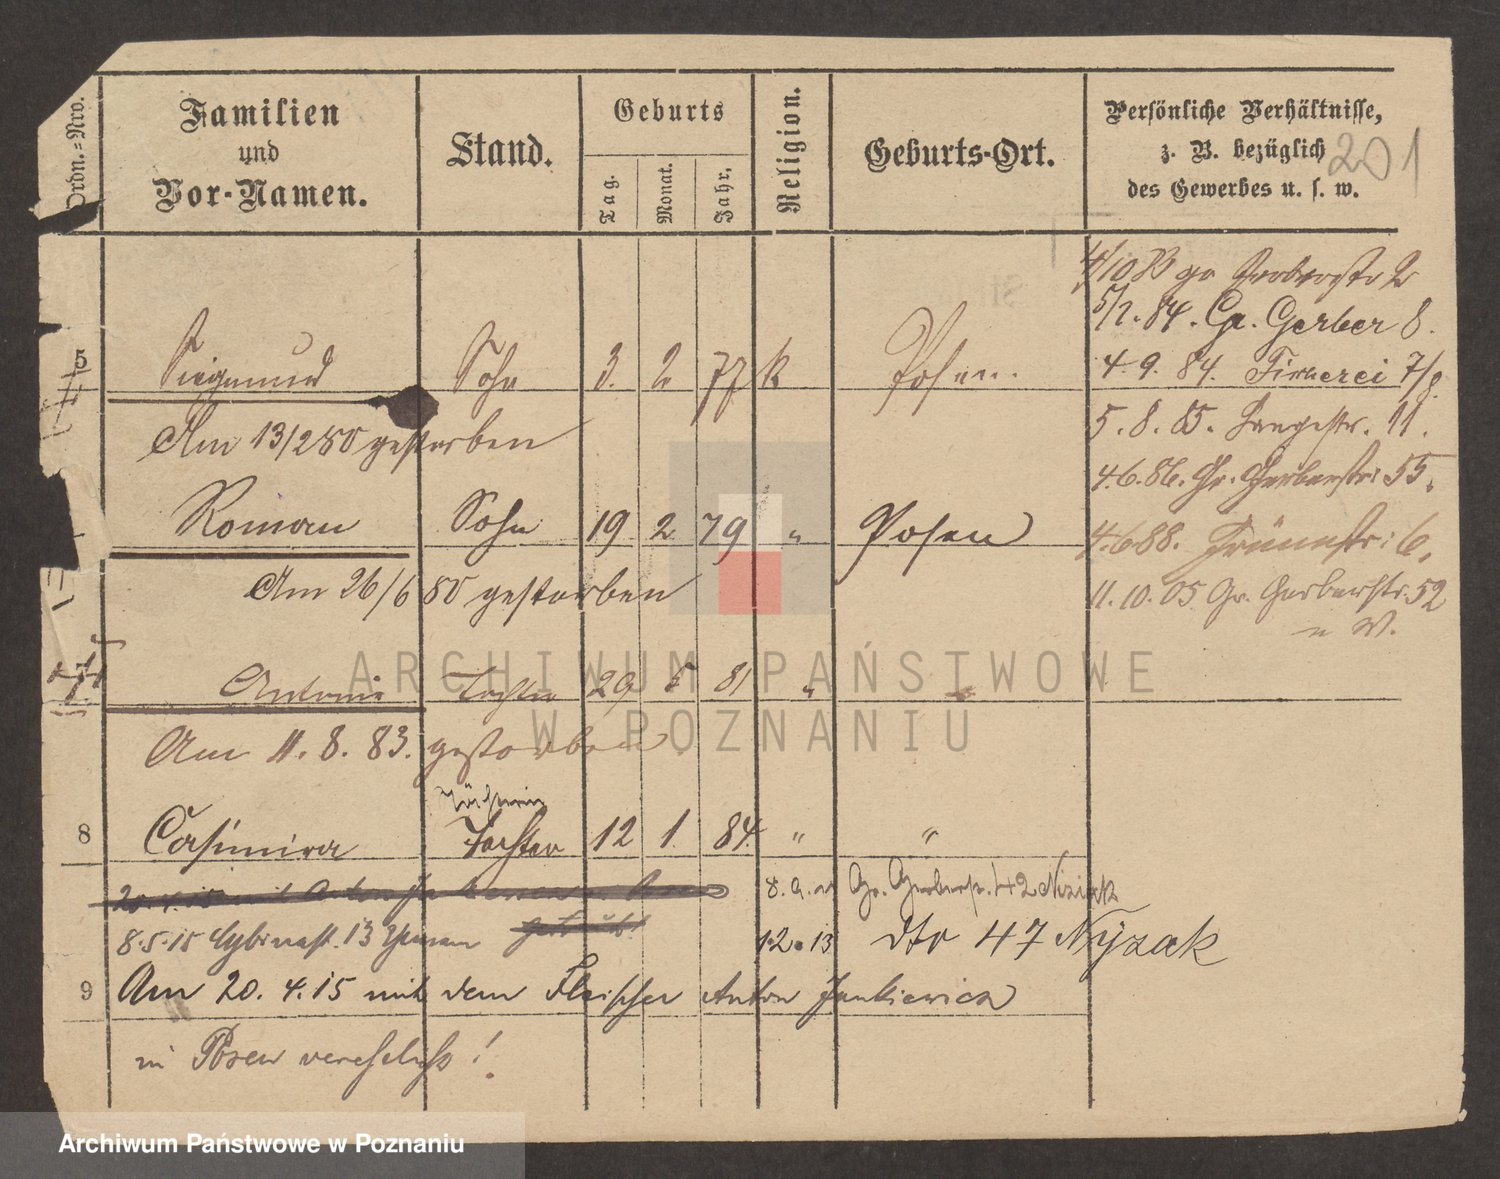 Ordn.=Nro.
Familien
und
Vor-Namen.
Stand.
Geburts
Tag.
Monat.
Jahr.
Religion.
Geburts-Ort.
Persönliche Verhältnisse,
z. B. bezüglich
des Gewerbes u. s. w.
201
4/10 gr Gerberstr 2
5/1. 84. Gr. Gerber 8.
5 Siegmund Sohn 3. 2 77 k Posen.
4. 9. 84. 7/8.
5. 8. 85. Langestr. 11.
Am 13/2 80 gestorben
4.6.86. Gr. Gerberstr: 55.
Roman Sohn 19 2 79 " Posen
4.6.88. Grünestr: 6.
Am 26/6 80 gestorben
11. 10. 05 Gr. Gerberstr. 52
n W.
Antonie Tochter 29 5 81 "
Am 11. 8. 83. gestorben
8 Casimira Tochter 12 1. 84. " "
Gr. Gerberstr. 42
8.5.15 13
1.2.13 dto 47 Nyzak
9 Am 20. 4. 15 mit dem Fleischer Anton Jankiewicz
in Posen verehelicht!
ARCHIWUM PAŃSTWOWE
W POZNANIU
Archiwum Państwowe w Poznaniu